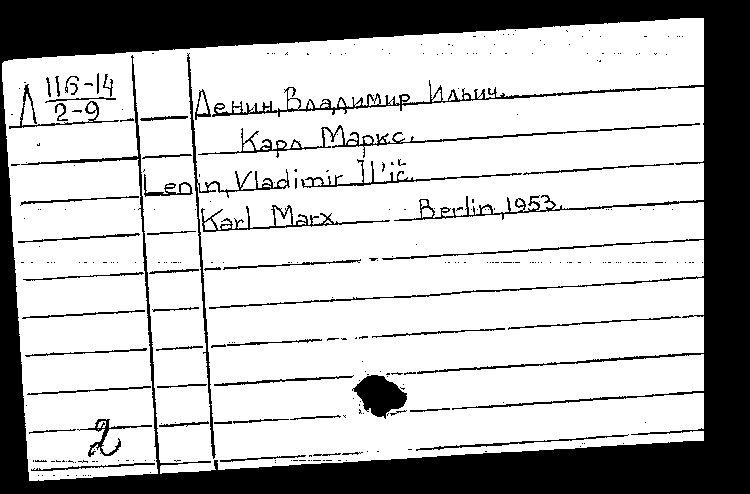 Л 116-14
2-9
Ленин, Владимир Ильич.
Карл Маркс.
Lenin, Vladimir Il'ič.
Karl Marx. Berlin, 1953.
2